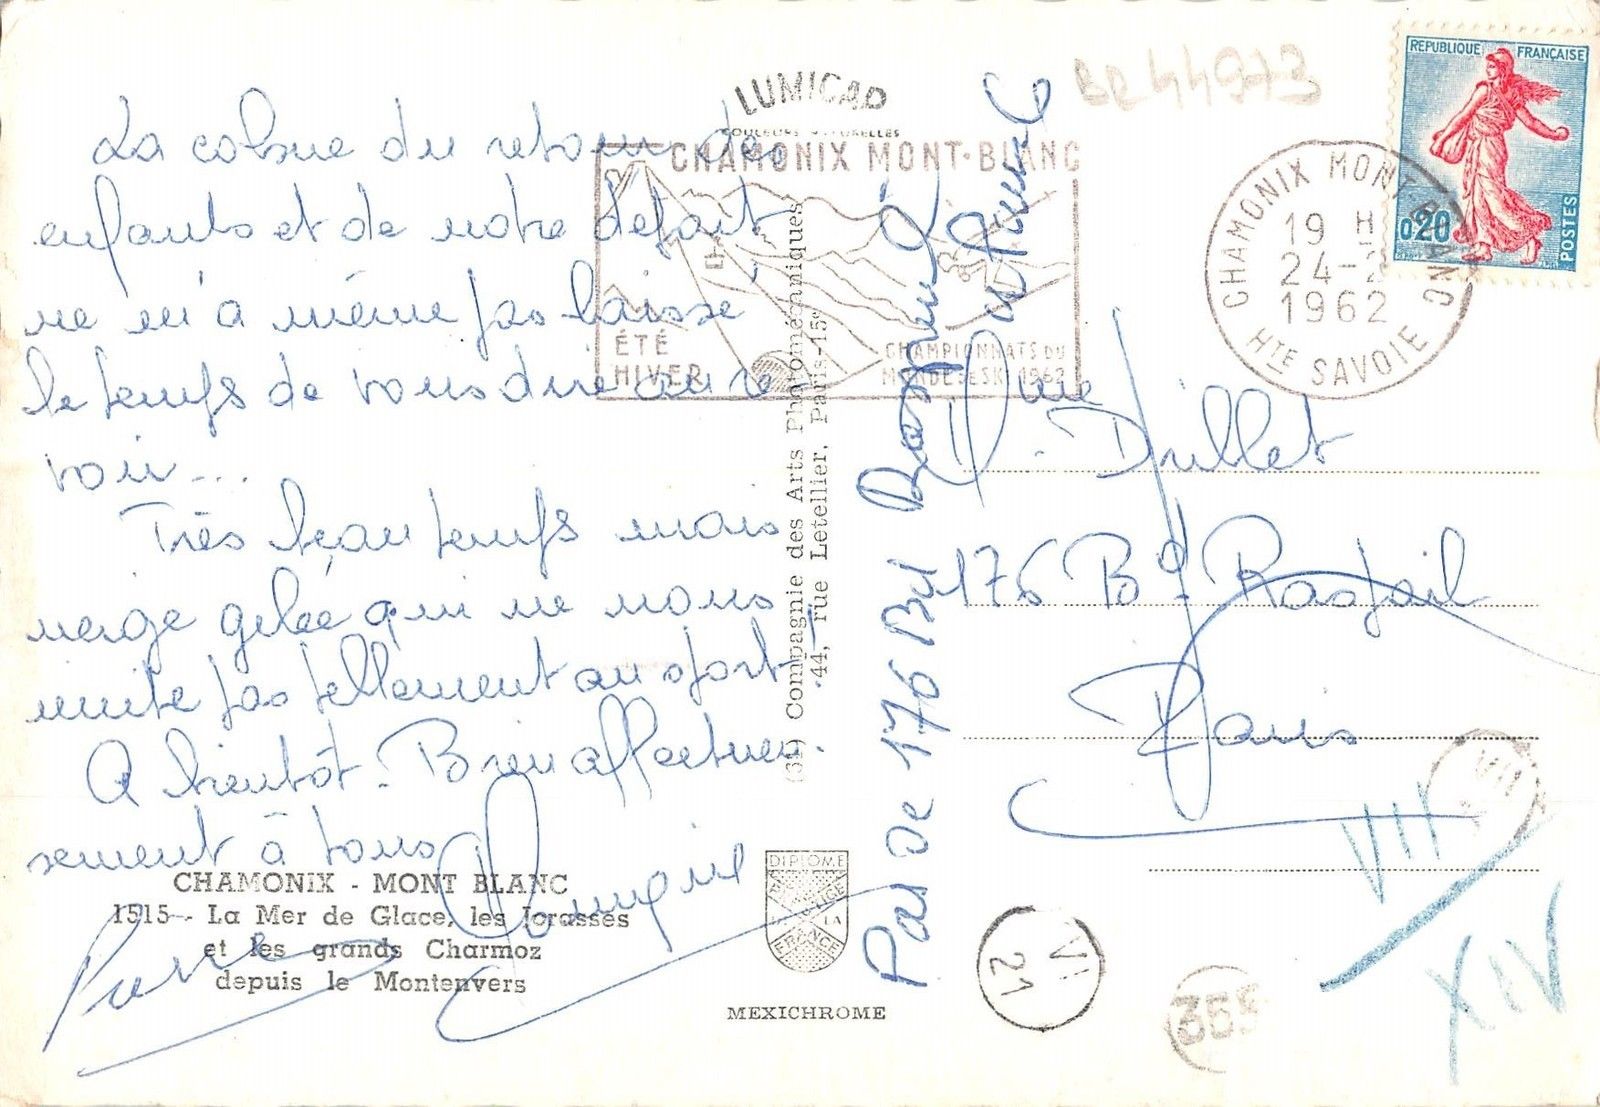 La cohue du retour des
enfants et de notre départ
ne m'a même pas laissé
le temps de vous dire au re-
voir...
Très beau temps mais
neige gelée qui ne nous
invite pas tellement au sport
A bientôt. Bien affectueu-
sement à tous
Pierre
CHAMONIX - MONT BLANC
1515 - La Mer de Glace, les Jorasses
et les grands Charmoz
depuis le Montenvers
LUMICAP
COULEURS NATURELLES
CHAMONIX MONT-BLANC
ÉTÉ
HIVER
CHAMPIONNATS DU
MONDE DE SKI 1962
Compagnie des Arts Photomécaniques
44, rue Letellier, Paris-15e
DIPLOME
FRANCE
MEXICHROME
Pas de 176 Bd Raspail
BR44973
REPUBLIQUE FRANÇAISE
0,20
POSTES
CHAMONIX MONT BLANC
19 H
24-2
1962
HTE SAVOIE
Mme Drillet
176 Bd Raspail
Paris
VI
21
355
VII
VII
XIV